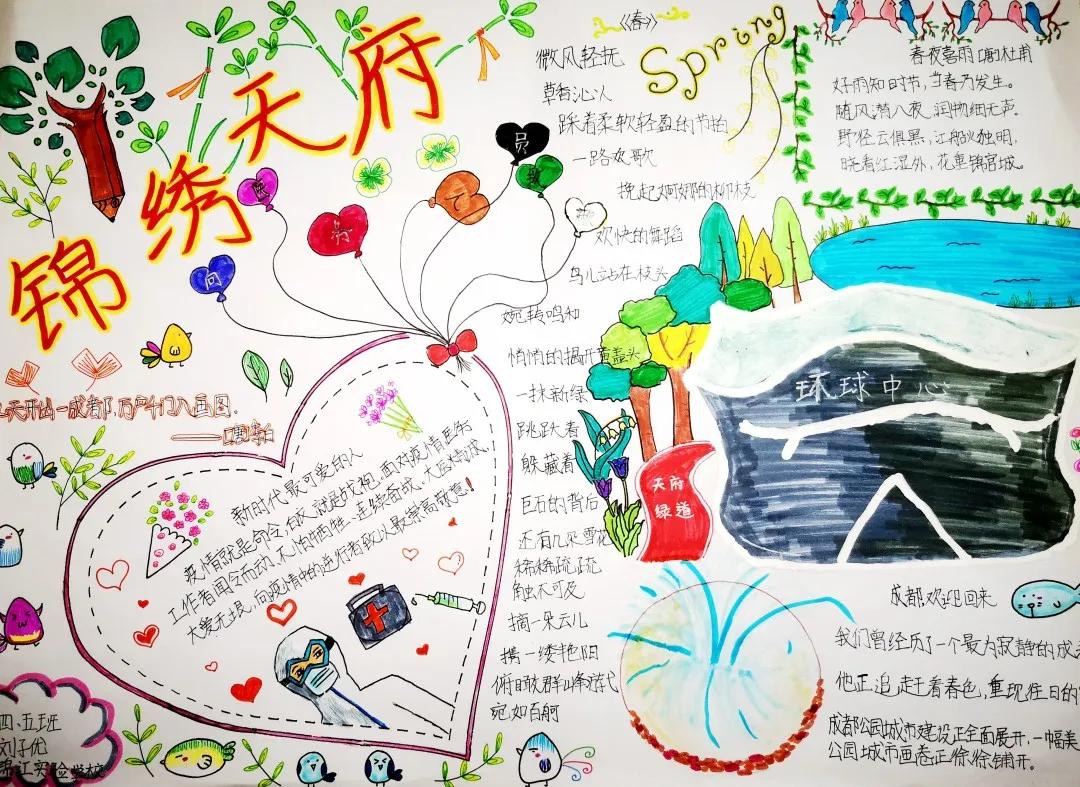 锦绣天府
向
医
务
人
员
致
敬
九天开出一成都，万户千门入画图。
——唐李白
《春》
Spring
微风轻抚
草香沁人
踩着柔软轻盈的节拍
一路欢歌
挽起婀娜的柳枝
欢快的舞蹈
鸟儿站在枝头
婉转鸣和
悄悄的揭开面盖头
一抹新绿
跳跃着
躲藏着
巨石的背后
还有几朵雪花
稀稀疏疏
触不可及
摘一朵云儿
携一缕艳阳
俯瞰群山
宛如百舸
春夜喜雨 [唐]杜甫
好雨知时节，当春乃发生。
随风潜入夜，润物细无声。
野径云俱黑，江船火独明。
晓看红湿处，花重锦官城。
环球中心
天府
绿道
新时代最可爱的人
疫情就是命令，白衣就是战袍，面对疫情医务
工作者闻令而动，不怕牺牲，连续奋战，大医精诚，
大爱无疆，向疫情中的逆行者致以最崇高敬意！
成都欢迎回来
我们曾经历了一个最为寂静的成
他正追赶着春色，重现往日的
成都公园城市建设正全面展开，一幅美
公园城市画卷正徐徐铺开。
四、五班
刘子优
锦江实验学校